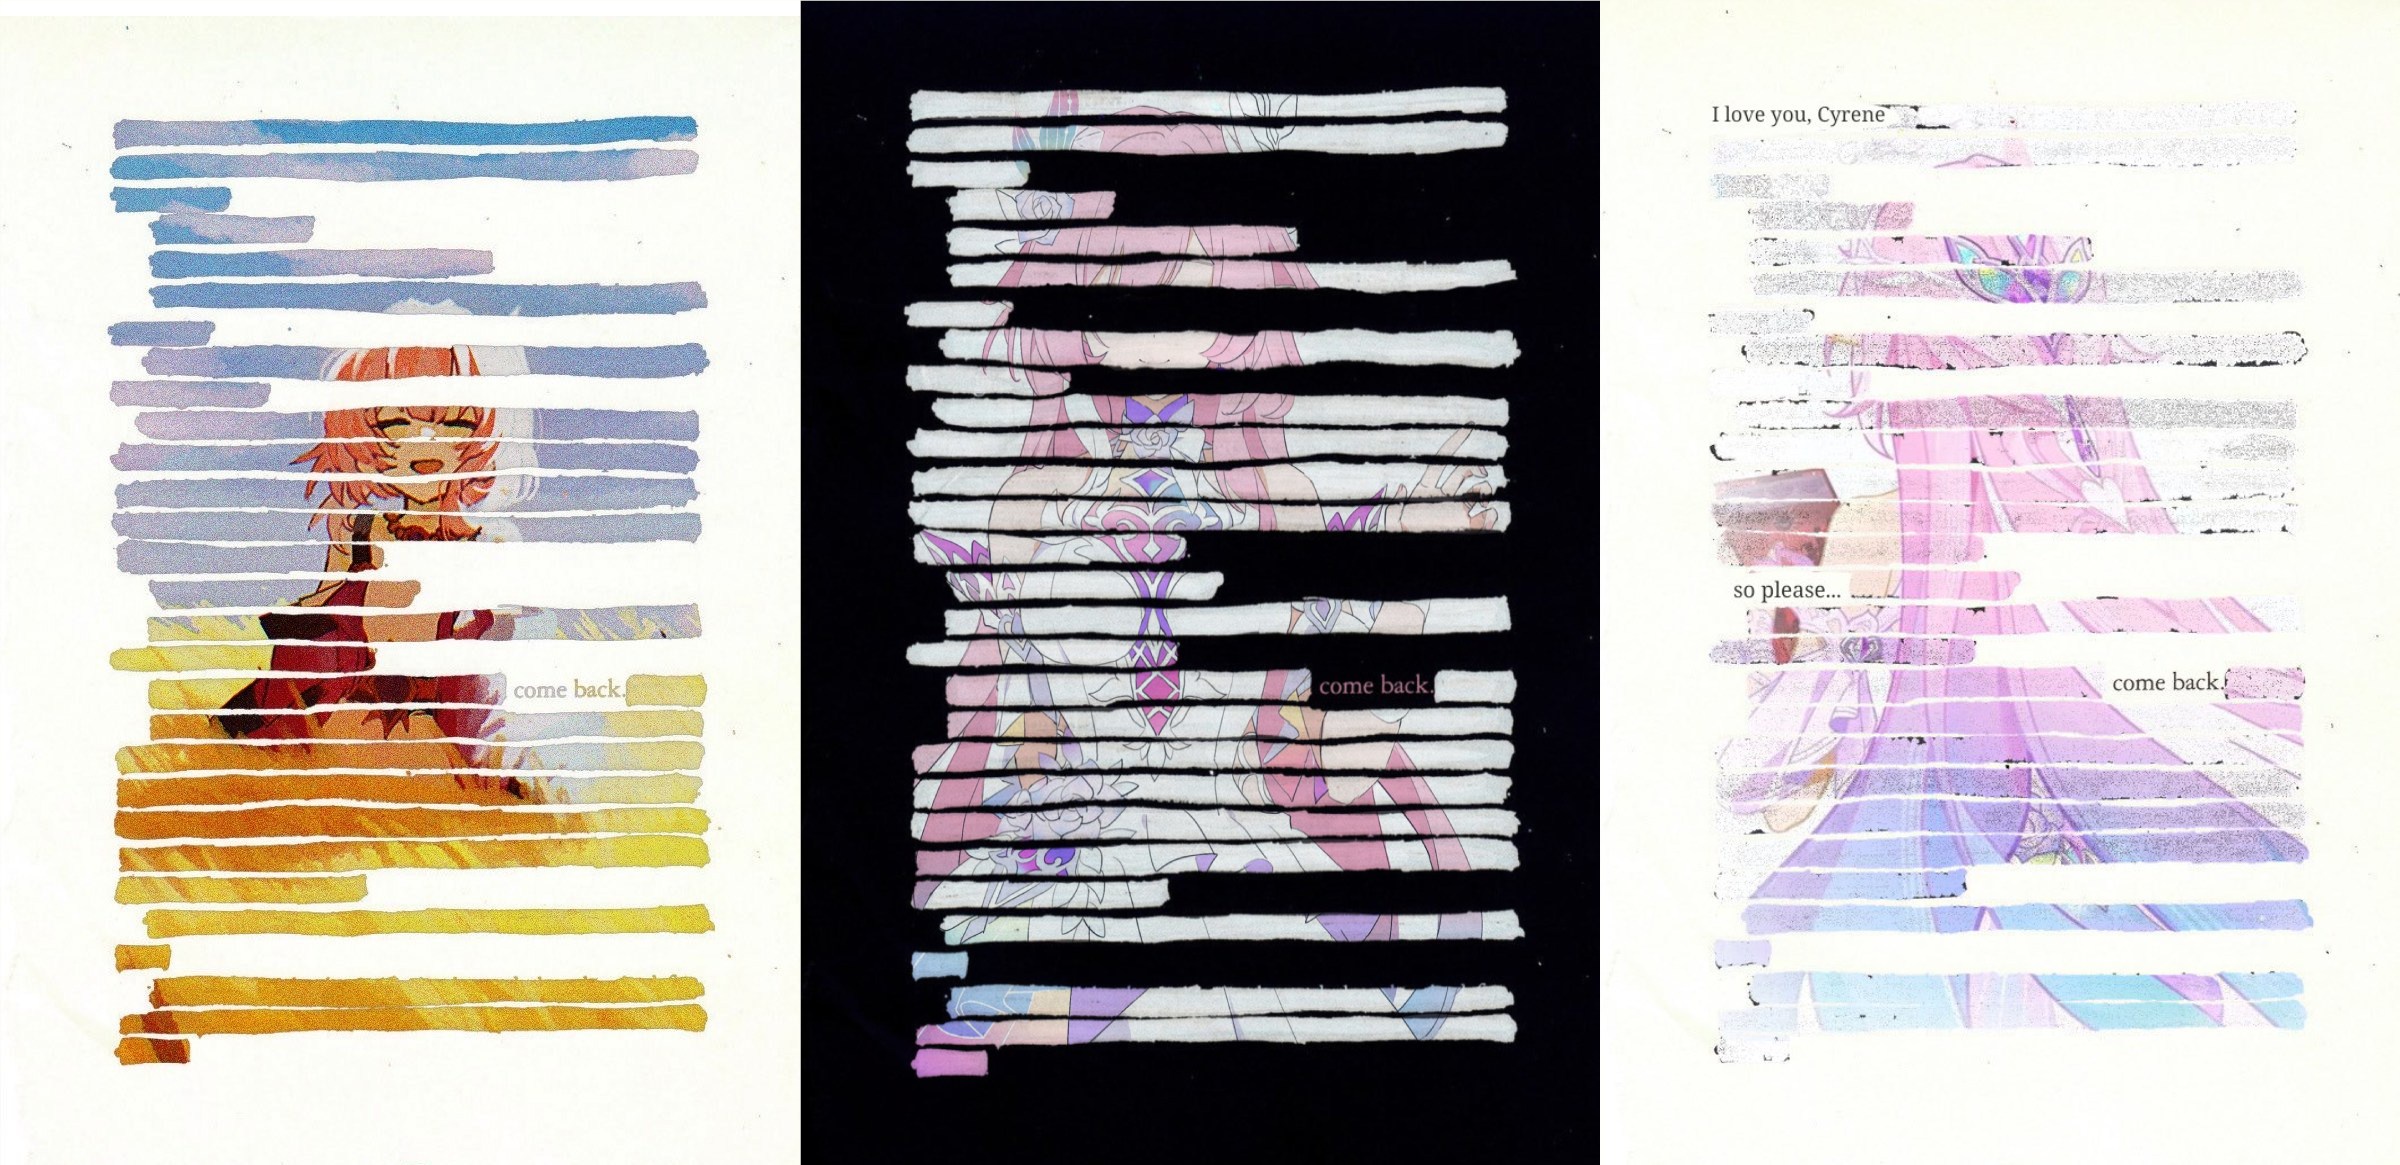 come back.
come back.
I love you, Cyrene
so please...
come back.